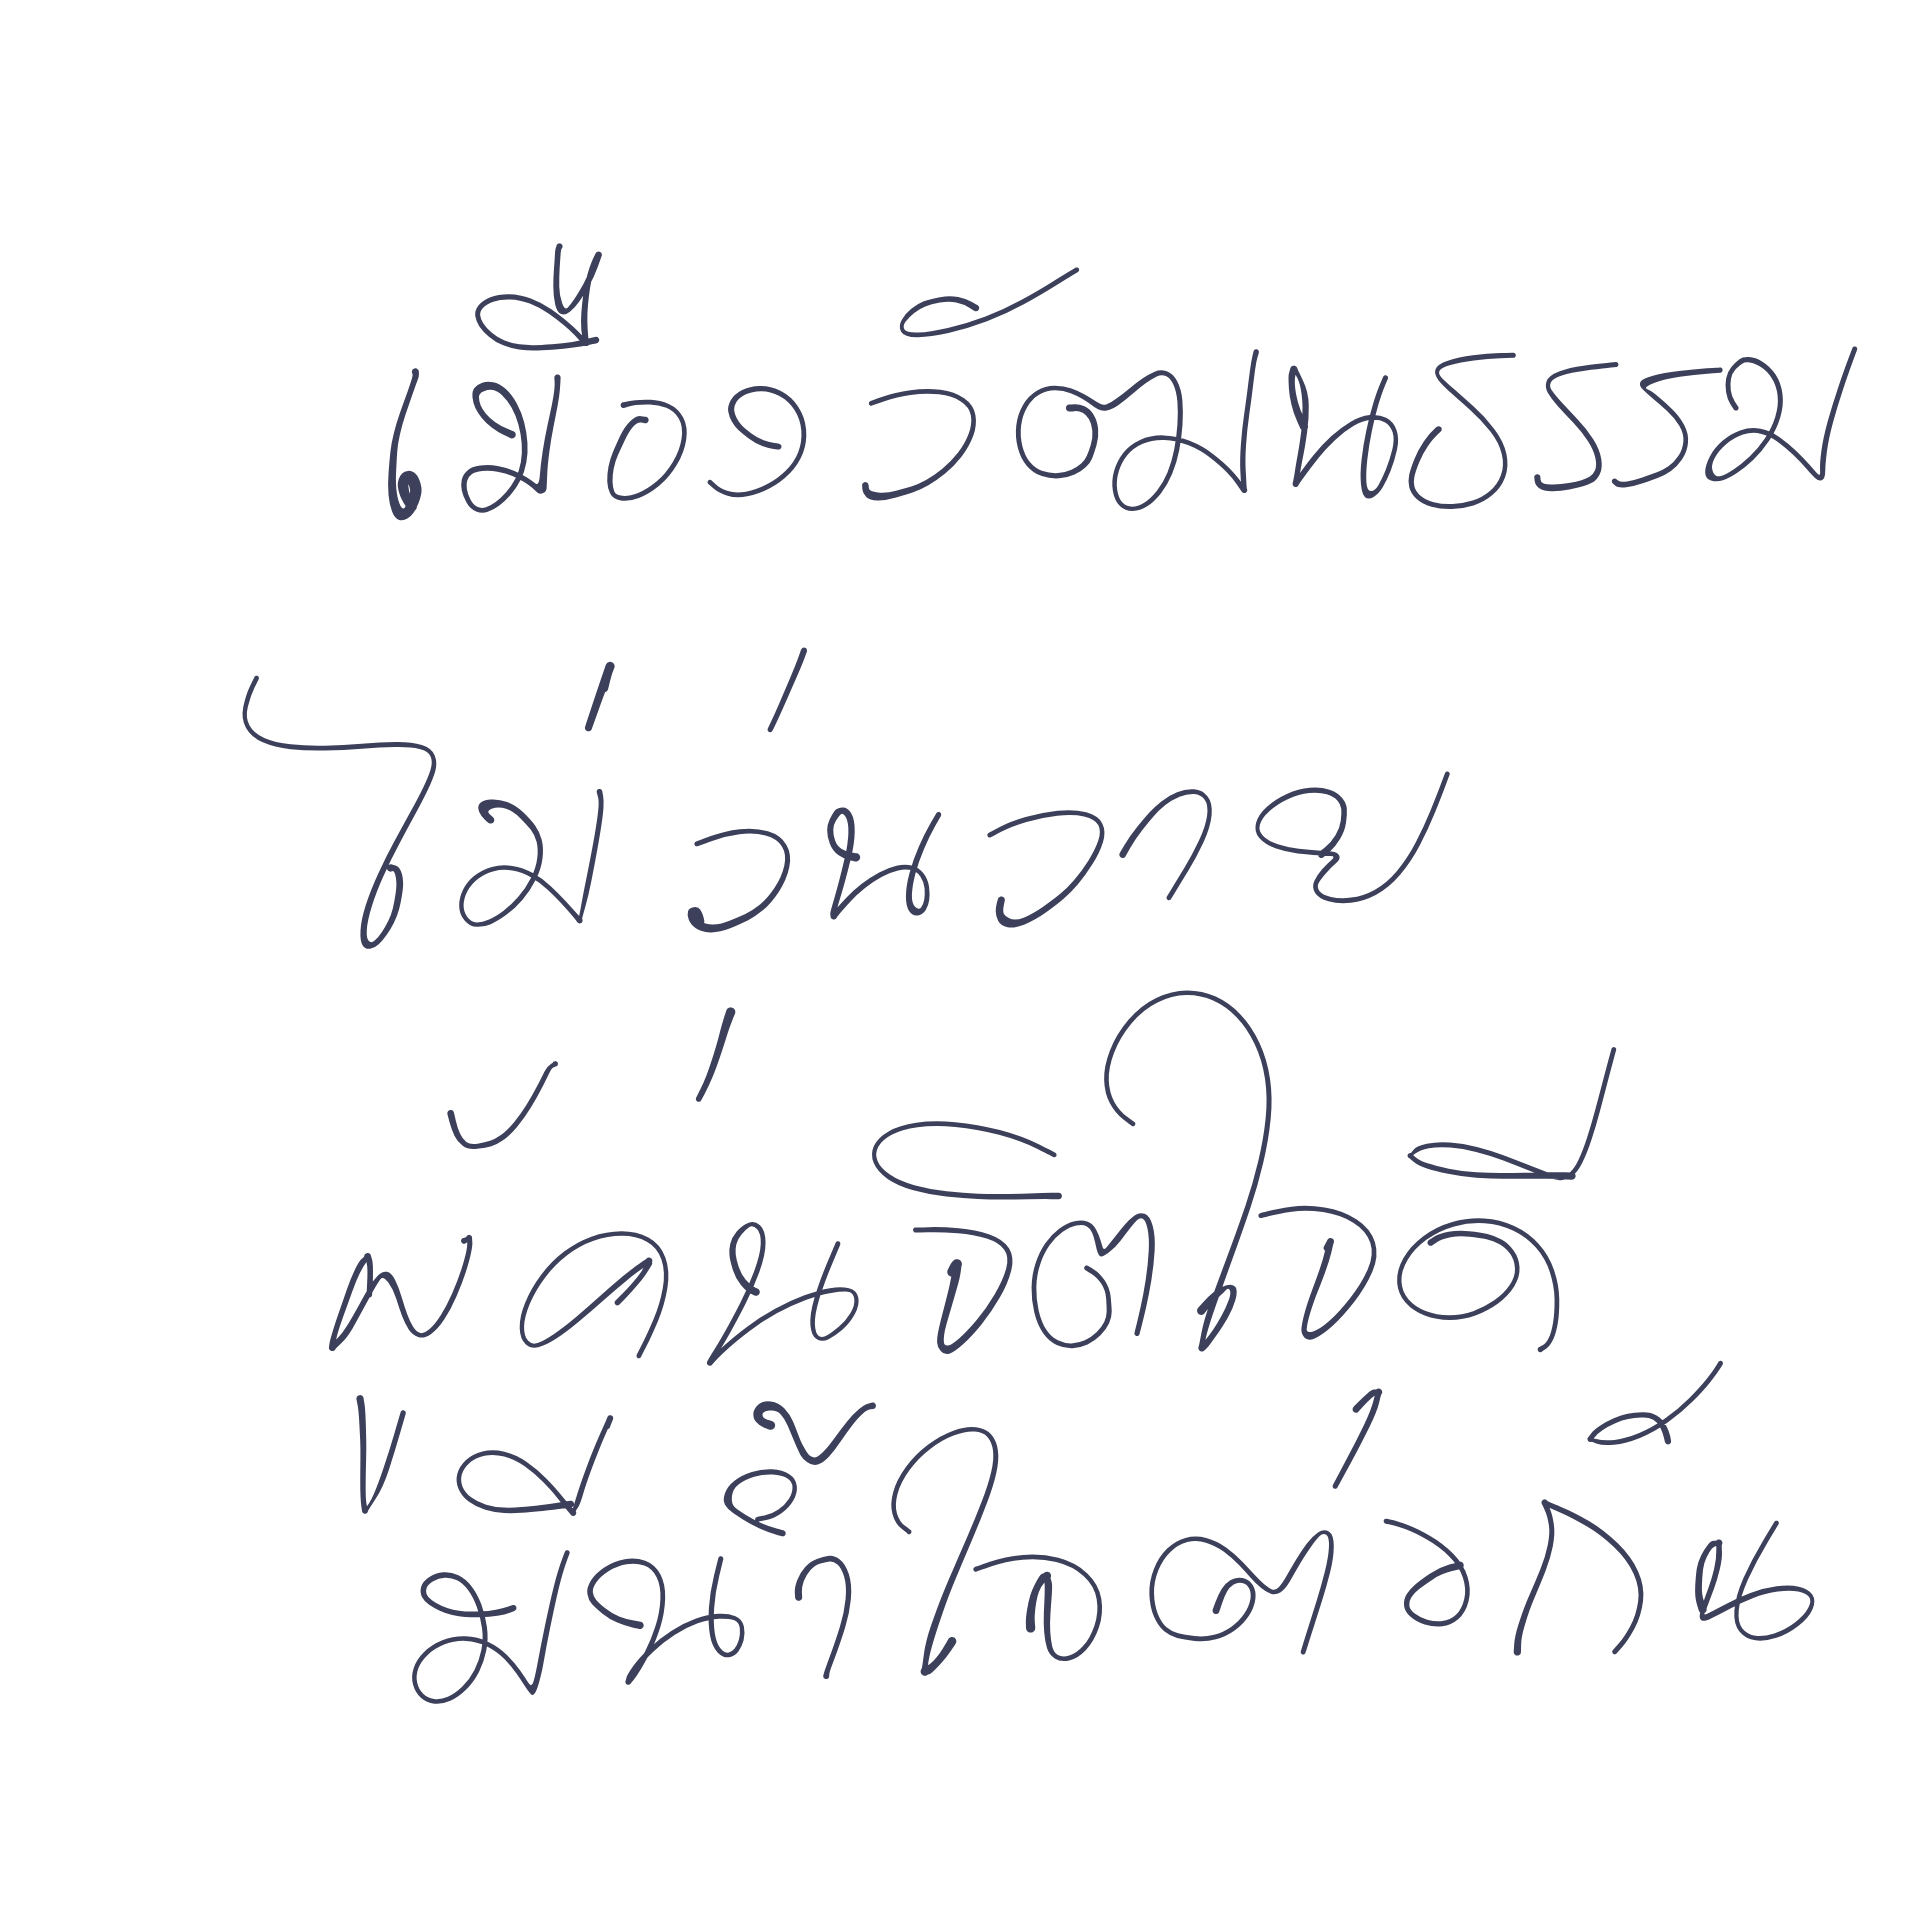 เมืองวัฒนธรรม
ไม่วุ่นวาย
ผู้คนจิตใจดี
มีน้ำใจต่อกัน